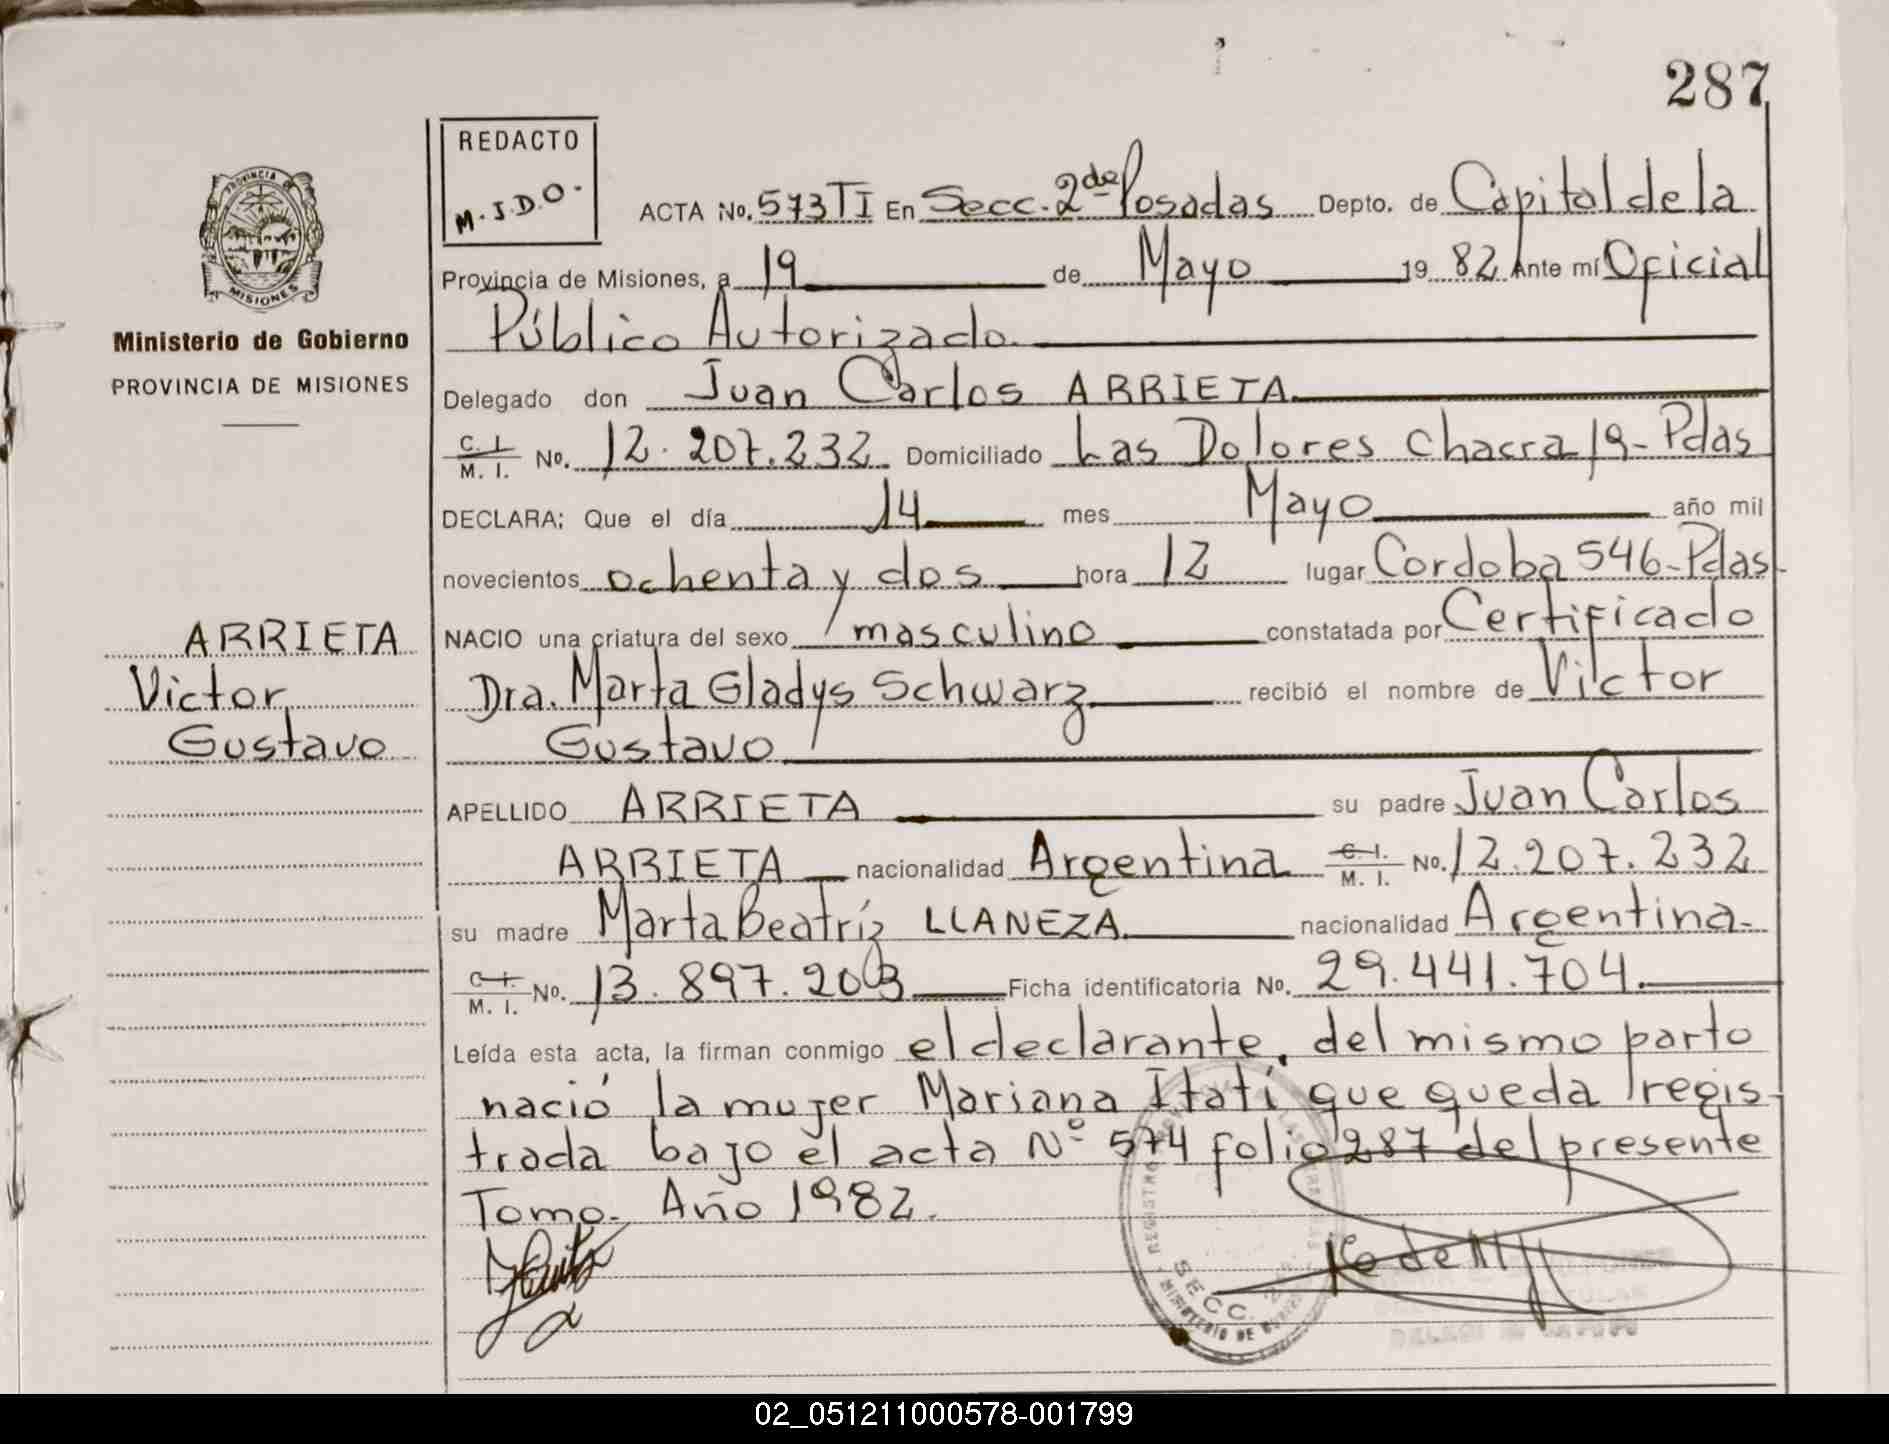 287
REDACTO
M.J.D.O.
ACTA No. 573 TI En Secc. 2da Posadas Depto. de Capital de la
Provincia de Misiones, a 19 de Mayo 1982 Ante mí Oficial
Público Autorizado.
Delegado don Juan Carlos ARRIETA
C. I. M. I. No. 12.207.232 Domiciliado Las Dolores Chacra 19-Pdas
DECLARA: Que el día 14 mes Mayo año mil
novecientos ochenta y dos hora 12 lugar Cordoba 546-Pdas
NACIO una criatura del sexo masculino constatada por Certificado
Dra. Marta Gladys Schwarz recibió el nombre de Victor
Gustavo
APELLIDO ARRIETA su padre Juan Carlos
ARRIETA nacionalidad Argentina C. I. M. I. No. 12.207.232
su madre Marta Beatríz LLANEZA nacionalidad Argentina-
C. I. M. I. No. 13.897.203 Ficha identificatoria No. 29.441.704.
Leída esta acta, la firman conmigo el declarante. del mismo parto
nació la mujer Mariana Itatí que queda regis-
trada bajo el acta Nº 574 folio 287 del presente
Tomo. Año 1982.
PROVINCIA DE
MISIONES
Ministerio de Gobierno
PROVINCIA DE MISIONES
ARRIETA
Victor
Gustavo
SECC. 2
02_051211000578-001799